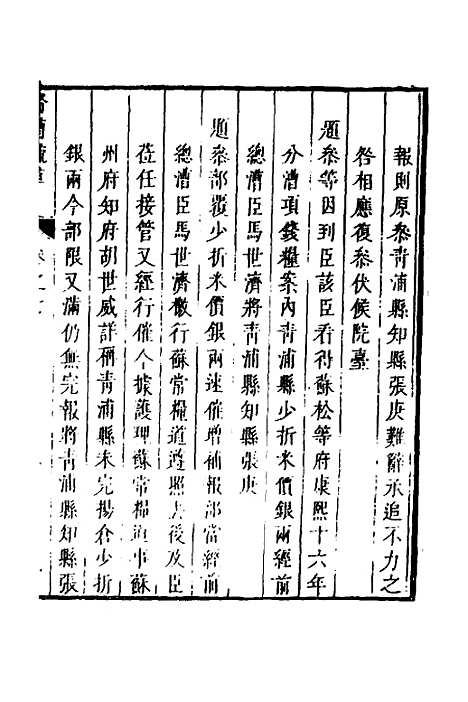 報則原參青浦縣知縣張庚難辭承追不力之
咎相應復參伏候院臺
題參等因到臣該臣看得蘇松等府康熙十六年
分漕項錢糧案內青浦縣少折米價銀兩經前
總漕臣馬世濟將青浦縣知縣張庚
題參部覆少折米價銀兩速催增補報部當經前
總漕臣馬世濟檄行蘇常糧道遵照去後及臣
莅任接管又經行催今據護理蘇常糧道事蘇
州府知府胡世威詳稱青浦縣未完揚倉少折
銀兩今部限又滿仍無完報將青浦縣知縣張
卷之